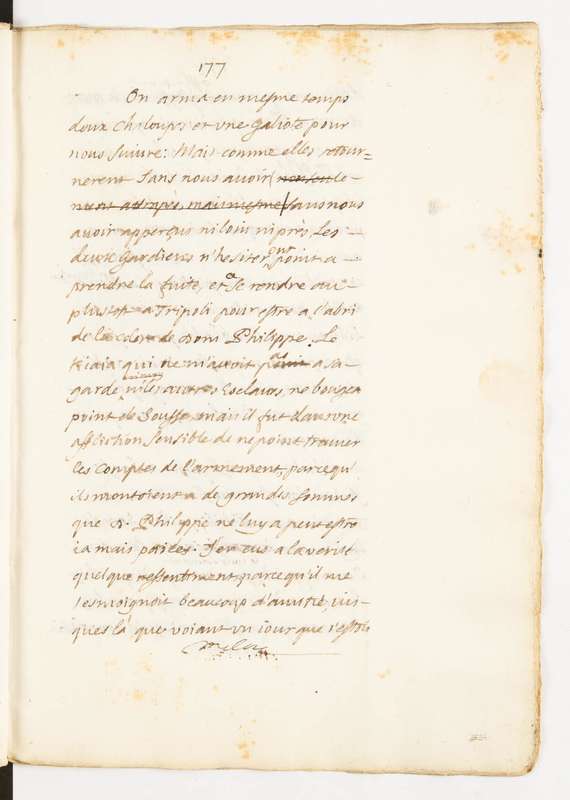 177
On arma en mesme temps
deux chiloupes et vne Galiote pour
nous suiure: Mais comme elles retour=
nerent sans nous auoir non seule-
ment attrapés, mais mesme sans nous
auoir apperçus ni loin ni près, Les
deux Gardiens n'hesiterent point a
prendre la fuite, et a se rendre au
plustost a Tripoli pour estre a l'abri
de la colere de Dom Philippe. Le
Kiaia qui ne m'auoit pas a sa
garde, ni les autres Esclaues, ne bougea
point de Sousse mais il fut dans vne
affliction sensible de ne point trouuer
les Comptes de l'armement, parcequ'
ils montoient a de grandes sommes
que D. Philippe ne luy a peut estre
iamais paiées. J'en eus a la verité
quelque ressentiment parcequ'il me
tesmoignoit beaucoup d'amitié, ius-
ques là que voiant vn iour que i'estois